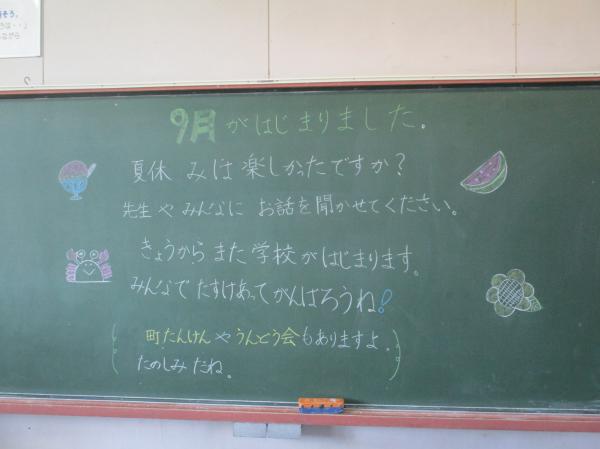 9月がはじまりました。
夏休みは楽しかったですか？
先生やみんなに お話を聞かせてください。
きょうからまた学校がはじまります。
みんなでたすけあってがんばろうね!
(町たんけんやうんどう会もありますよ。
たのしみだね。)